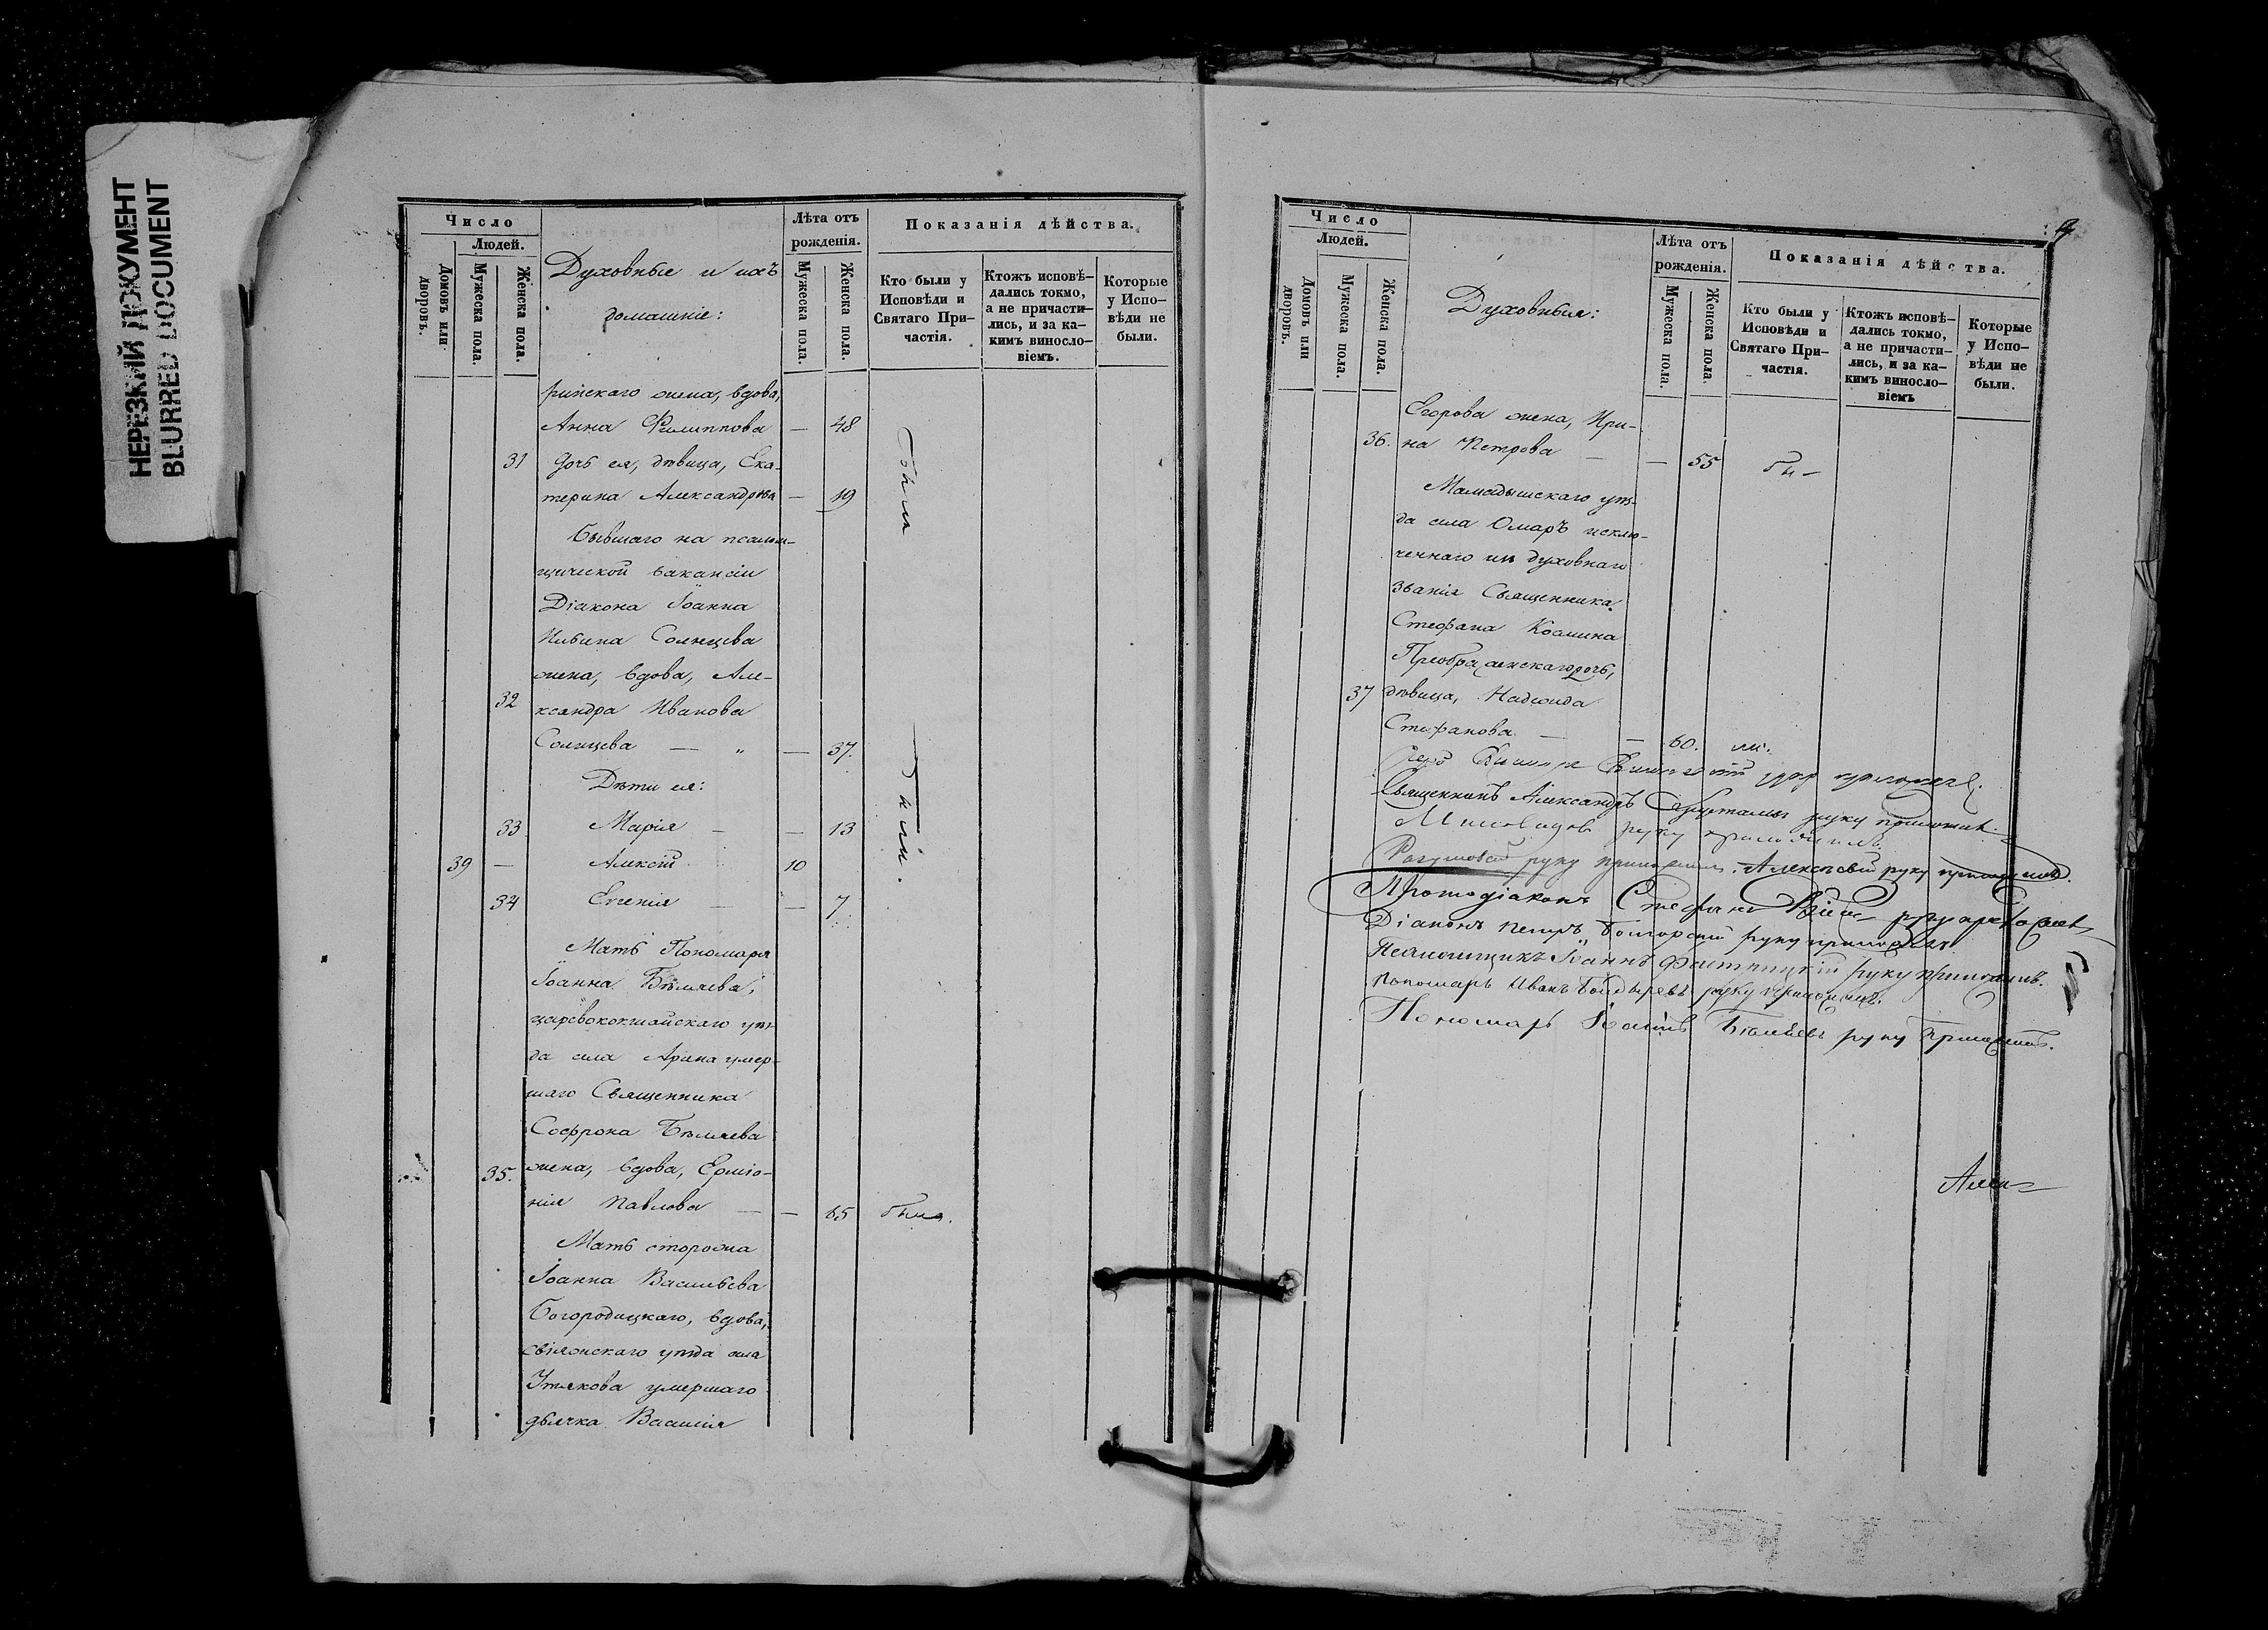 НЕРЕЗКИЙ ДОКУМЕНТ
BLURRED DOCUMENT
Число
Людей.
Домовъ или дворовъ.
Мужеска пола.
Женска пола.
Духовные и ихъ
домашніе:
Лѣта отъ
рожденія.
Мужеска пола.
Женска пола.
Показанія дѣйства.
Кто были у
Исповѣди и
Святаго При-
частія.
Ктожъ исповѣ-
дались токмо,
а не причасти-
лись, и за ка-
кимъ винosло-
віемъ.
Которые
у Испо-
вѣди не
были.
жена, вдова,
Анна Филиппова — 48
31 Дочь ея, дѣвица, Ека-
терина Александрова — 19
были
Бывшаго на псалом-
щической вакансіи
Діакона Іоанна
Ильина Солнцева
жена, вдова, Але-
32 ксандра Иванова
Солнцева — „ — 37.
Дѣти ея:
33 Марія — — 13
были.
39 — Алексій 10
34 Евгенія — — 7
Мать Пономаря
Іоанна Бѣляева,
царевококшайскаго уѣз-
да села Арина умер-
шаго Священника
Софрона Бѣляева
35. жена, вдова, Ерміо-
нія Павлова — — 65 была.
Мать сторожа
Іоанна Васильева
Богородицкаго, вдова,
свіяжскаго уѣзда села
Утякова умершаго
дьячка Василія
Число
Людей.
Домовъ или дворовъ.
Мужеска пола.
Женска пола.
Духовныя:
Лѣта отъ
рожденія.
Мужеска пола.
Женска пола.
Показанія дѣйства.
Кто были у
Исповѣди и
Святаго При-
частія.
Ктожъ исповѣ-
дались токмо,
а не причасти-
лись, и за ка-
кимъ виносло-
віемъ
Которые
у Испо-
вѣди не
были.
Егорова жена, Ири-
36. на Петрова — — 55 бы-
Мамадышскаго уѣз-
да села Омаръ исклю-
ченнаго изъ духовнаго
званія Священника
Стефана Козмина
Преображенскаго дочь,
37 дѣвица, Надежда
Стефанова — — 60. ли.
руку приложилъ.
Священникъ Александръ руку приложилъ.
руку приложилъ.
руку приложилъ. Алексѣевъ руку приложилъ.
Протодіаконъ Стефанъ руку приложилъ
Діаконъ Петръ Болгарскій руку приложилъ
Псаломщикъ Іоаннъ руку приложилъ.
Пономарь Иванъ Болдыревъ руку приложилъ.
Пономарь Іоаннъ Бѣляевъ руку приложилъ.